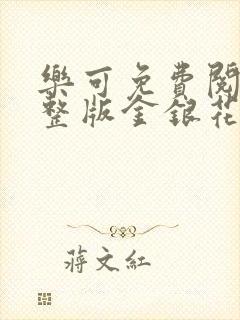 樂可免費閱
整版金銀花
蔣文紅